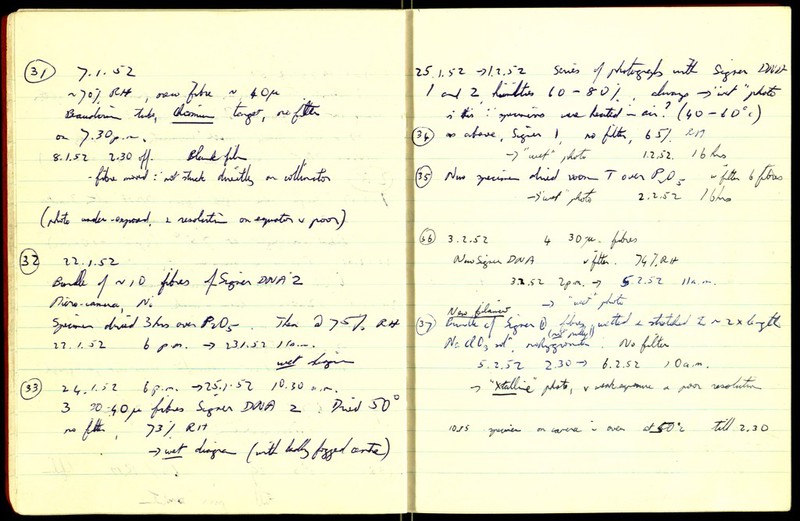 (31) 7.1.52
~70% RH, new fibre ~ 40μ
Beaudouin tube, Chromium target, no filter
on 7.30 p.m.
8.1.52 2.30 off. Blank film
- fibre moved : not stuck directly on collimator
(photo under-exposed, & resolution on equator v poor)
(32) 22.1.52
Bundle of ~10 fibres of Signer DNA 2
Micro-camera, Ni
Specimen dried 3 hrs over P2O5. Then @ 75% RH
22.1.52 6 p.m. → 23.1.52 11 a.m.
wet diagram
(33) 24.1.52 6 p.m. → 25.1.52 10.30 a.m.
3 30-40μ fibres Signer DNA 2 Dried 50°
no filter, 73% RH
→ wet diagram (with badly fogged centre)
25.1.52 → 1.2.52 Series of photographs with Signer DNA
1 and 2, humidities 60-80%. always → "wet" photo
is this : specimens we heated in air? (40-60°C)
(34) as above, Signer 1, no filter, 65% RH
→ "wet" photo 1.2.52 16 hrs
(35) New specimen dried room T over P2O5 filter 6 fibres
→ "wet" photo 2.2.52 16 hrs
(36) 3.2.52 4 30μ fibres
New Signer DNA filter. 74% RH
3.2.52 2 p.m. → 5.2.52 11 a.m.
→ "wet" photo
New filament
(37) Bundle of Signer fibres, wetted & stretched to ~ 2 x length
(not really)
NaClO3 sat. No filter
5.2.52 2.30 → 6.2.52 10 a.m.
→ "Xtalline" photo, v weak exposure & poor resolution
10.55 specimen on camera in oven at 50°C till 2.30